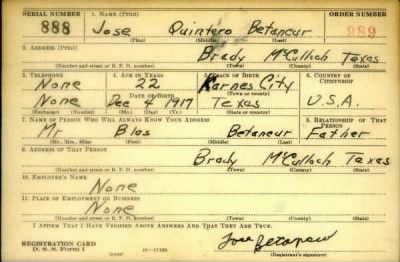 SERIAL NUMBER 1. NAME (Print) ORDER NUMBER
888 Jose Quintero Betancur 989
(First) (Middle) (Last)
2. ADDRESS (Print)
Brady McCulloch Texas
(Number and street or R. F. D. number) (Town) (County) (State)
3. TELEPHONE 4. AGE IN YEARS 5. PLACE OF BIRTH 6. COUNTRY OF CITIZENSHIP
None 22 Karnes City
DATE OF BIRTH (Town or county)
None Dec 4 1917 Texas U.S.A.
(Exchange) (Number) (Mo.) (Day) (Yr.) (State or country)
7. NAME OF PERSON WHO WILL ALWAYS KNOW YOUR ADDRESS 8. RELATIONSHIP OF THAT PERSON
Mr Blas Betancur Father
(Mr., Mrs., Miss) (First) (Middle) (Last)
9. ADDRESS OF THAT PERSON
Brady McCulloch Texas
(Number and street or R. F. D. number) (Town) (County) (State)
10. EMPLOYER'S NAME
None
11. PLACE OF EMPLOYMENT OR BUSINESS
None
(Number and street or R. F. D. number) (Town) (County) (State)
I AFFIRM THAT I HAVE VERIFIED ABOVE ANSWERS AND THAT THEY ARE TRUE.
REGISTRATION CARD
D. S. S. Form 1 (over) Jose
(Registrant's signature)